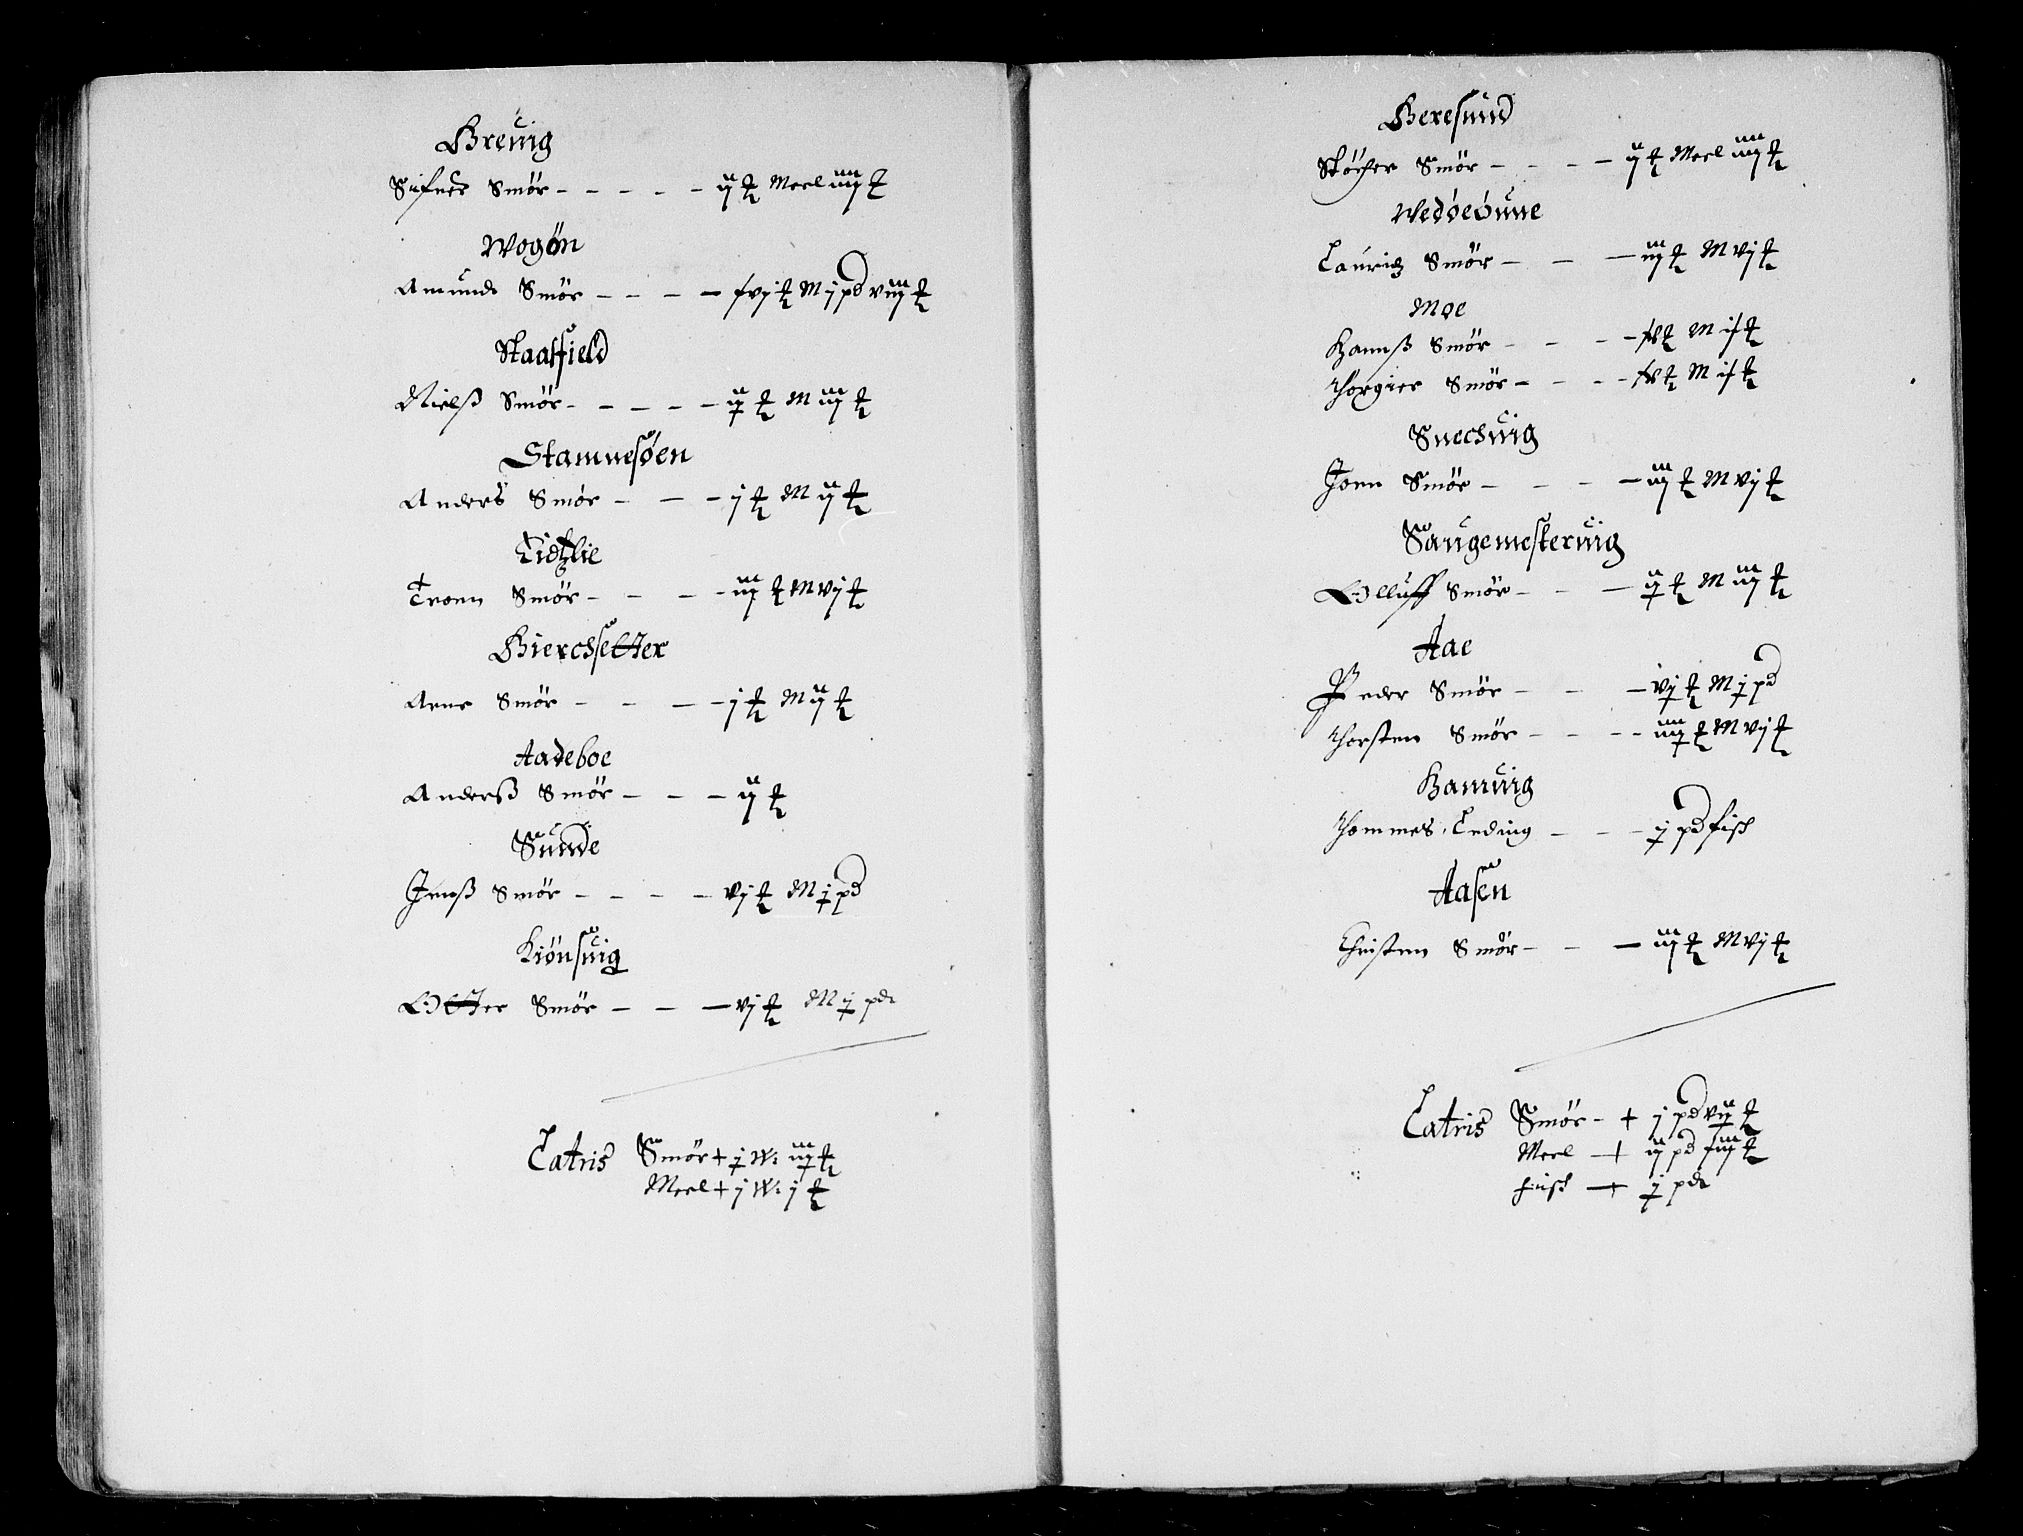 Breuig
Sifuer Smör - - - - - ij ℔ Meel iiij ℔
Wogön
Amunde Smör - - - - xvj ℔ M j pd viij ℔
Staalfield
Nielß Smör - - - - - ij ℔ M iiij ℔
Stamnesøen
Anders Smör - - - j ℔ M ij ℔
Tidtzlie
Tronn Smör - - - - iij ℔ M vj ℔
Bierchsetter
Arne Smör - - - - j ℔ M ij ℔
Aadeboe
Anderß Smör - - - ij ℔
Sunde
Jenß Smör - - - - vj ℔ M j pd
Kiönsuig
Otter Smör - - - vj ℔ M j pd
Latris Smör + j W: iij ℔
Meel + j W: j ℔
Beresund
Smör - - - - ij ℔ Meel iiij ℔
Wedøeöune
Lauritz Smör - - - iij ℔ M vj ℔
Moe
Hannß Smör - - - - M ℔
Thorgier Smör - - - - M ℔
Snechuig
Jonn Smör - - - - iij ℔ M vj ℔
Saugemesteruig
Olluff Smör - - - ij ℔ M iiij ℔
Aae
Peder Smör - - - vj ℔ M j pd
Thorsten Smör - - - - iiij ℔ M vij ℔
Hamuig
Thommes Leding - - - j pd fisch
Aasen
Christen Smör - - - iij ℔ M vj ℔
Latris Smör - + j pd vij ℔
Meel - + ij pd xiij ℔
fiisch - + j pd